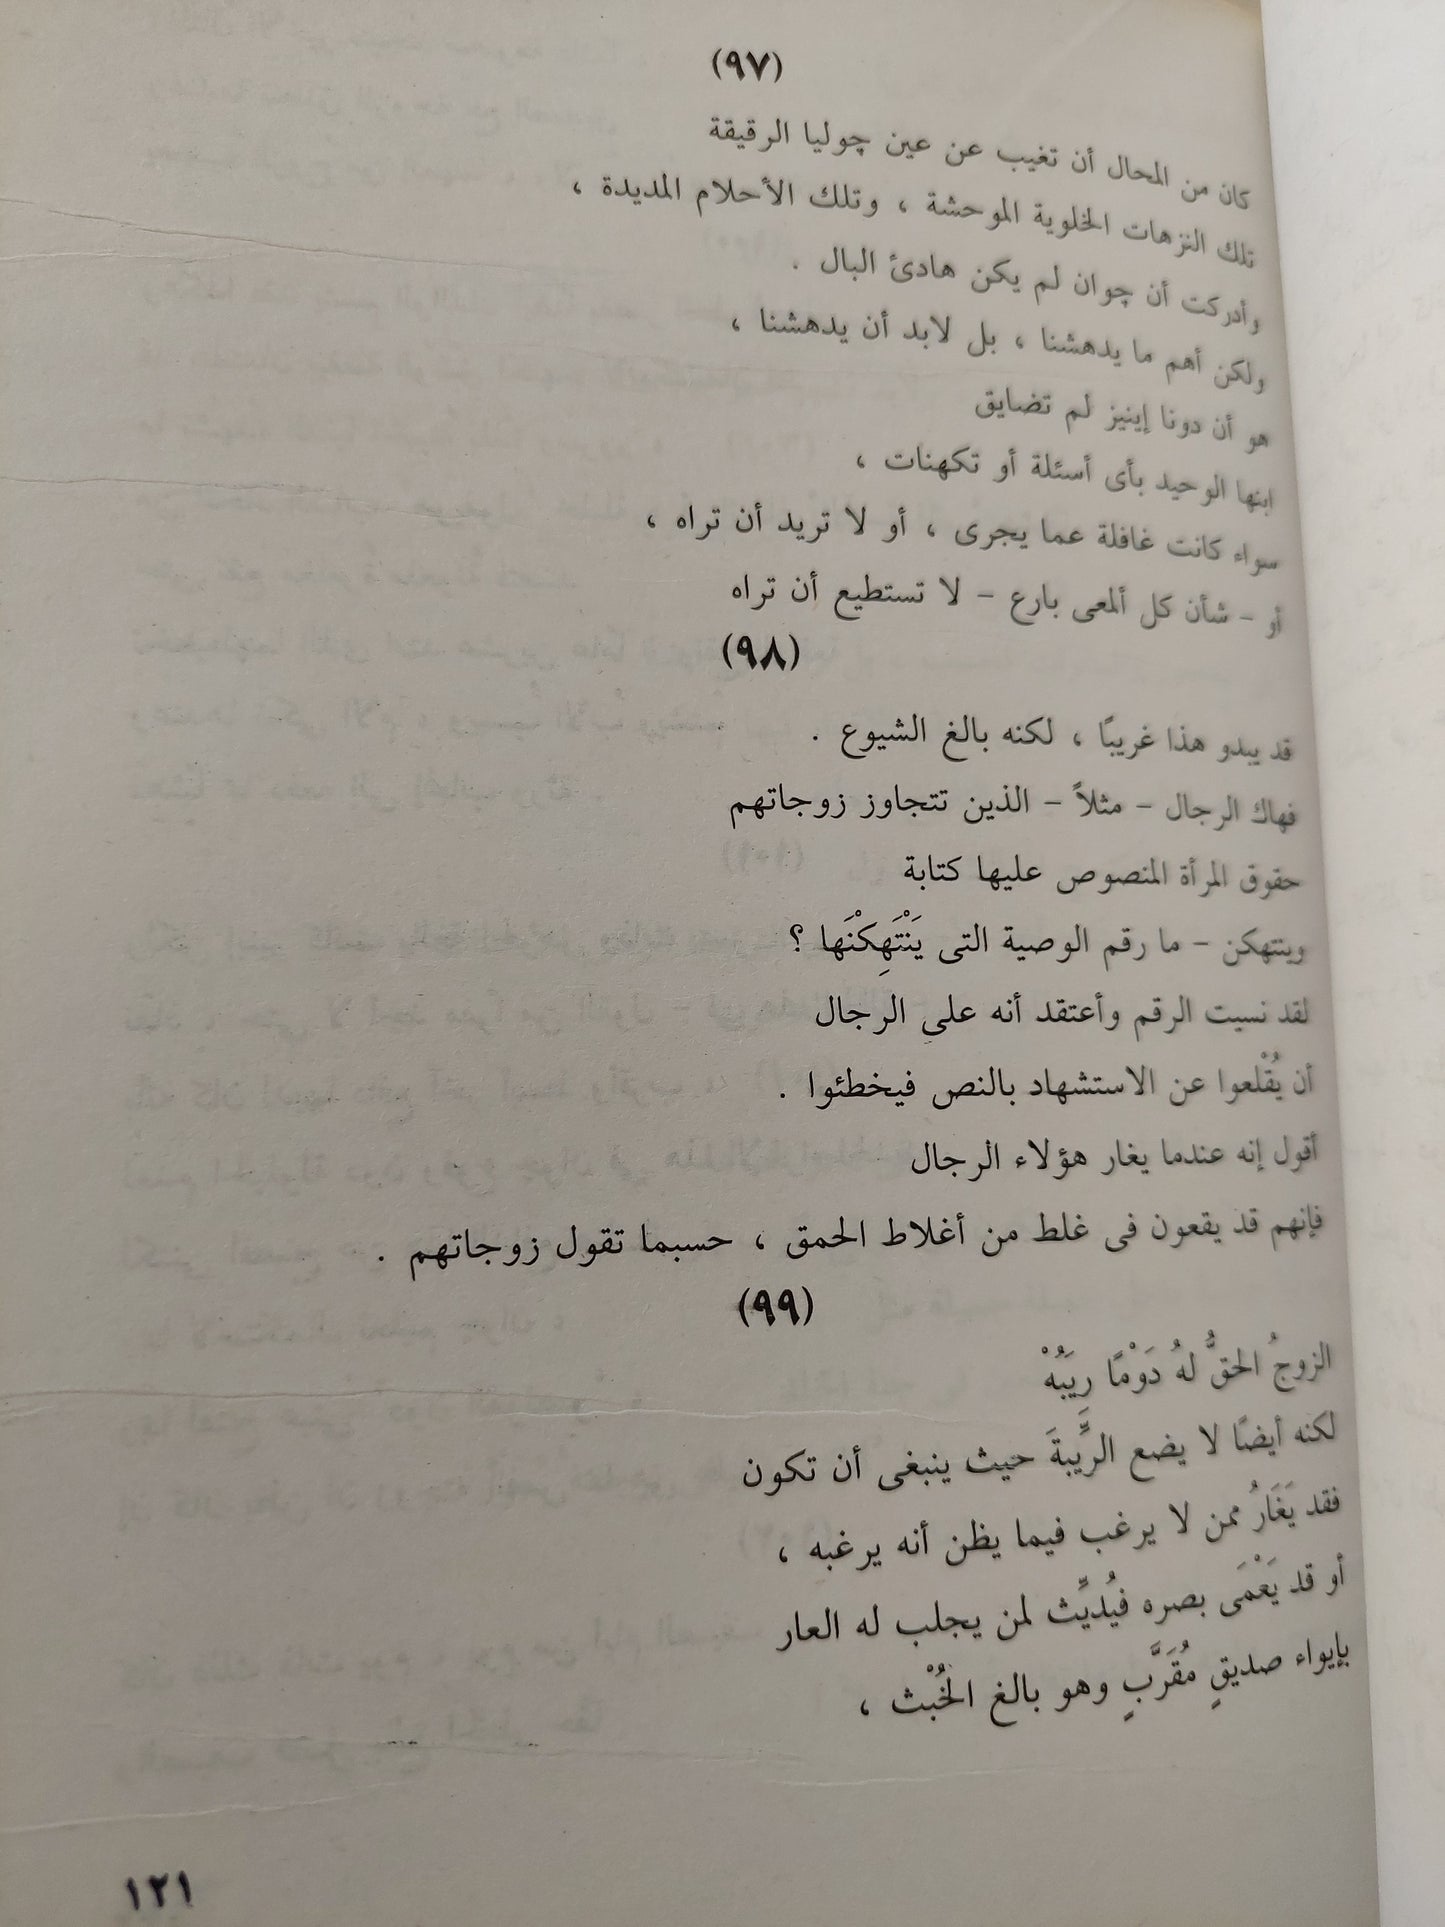 (٩٧)
كان من المحال أن تغيب عن عين چوليا الرقيقة
تلك النزهات الخلوية الموحشة ، وتلك الأحلام المديدة ،
وأدركت أن چوان لم يكن هادئ البال .
ولكن أهم ما يدهشنا ، بل لابد أن يدهشنا ،
هو أن دونا إينيز لم تضايق
ابنها الوحيد بأى أسئلة أو تكهنات ،
سواء كانت غافلة عما يجرى ، أو لا تريد أن تراه ،
أو – شأن كل ألمعى بارع – لا تستطيع أن تراه
(٩٨)
قد يبدو هذا غريبًا ، لكنه بالغ الشيوع .
فهاك الرجال – مثلاً – الذين تتجاوز زوجاتهم
حقوق المرأة المنصوص عليها كتابة
وينتهكن – ما رقم الوصية التى يَنْتَهِكْنَها ؟
لقد نسيت الرقم وأعتقد أنه على الرجال
أن يُقْلعوا عن الاستشهاد بالنص فيخطئوا .
أقول إنه عندما يغار هؤلاء الرجال
فإنهم قد يقعون فى غلط من أغلاط الحمق ، حسبما تقول زوجاتهم .
(٩٩)
الزوجُ الحقُّ لهُ دَوْمًا رِيَبُهْ
لكنه أيضًا لا يضع الرِّيبةَ حيث ينبغى أن تكون
فقد يَغَارُ ممن لا يرغب فيما يظن أنه يرغبه ،
أو قد يَعْمَى بصره فيُديِّث لمن يجلب له العار
بإيواء صديقٍ مُقَرَّبٍ وهو بالغ الخُبْث ،
١٢١